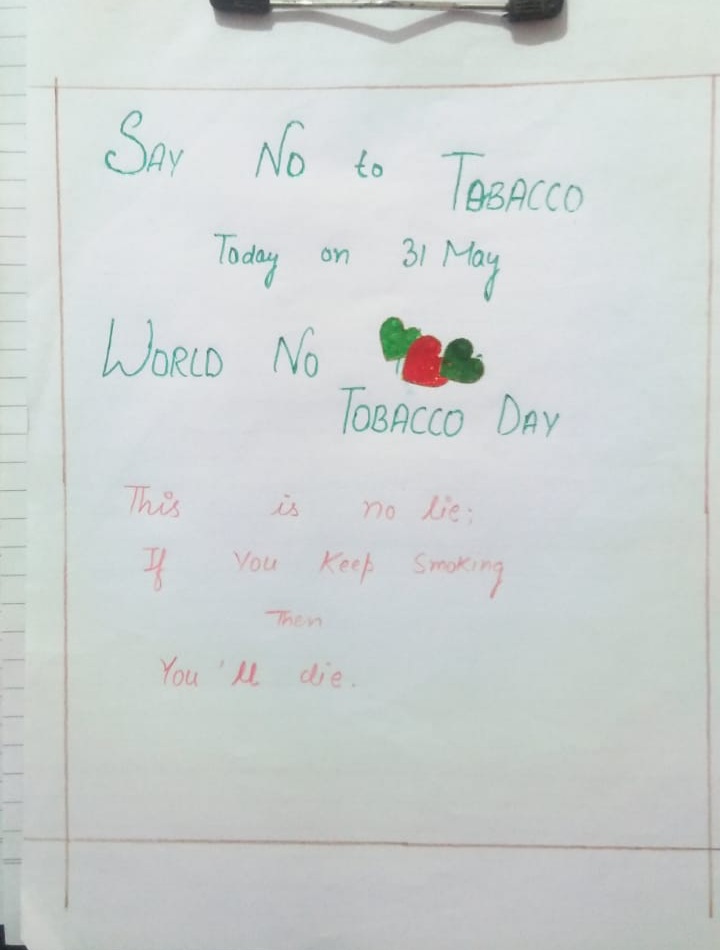 SAY NO to TABACCO
Today on 31 May
WORLD NO
TOBACCO DAY
This is no lie;
If You Keep Smoking
Then
You'll die.